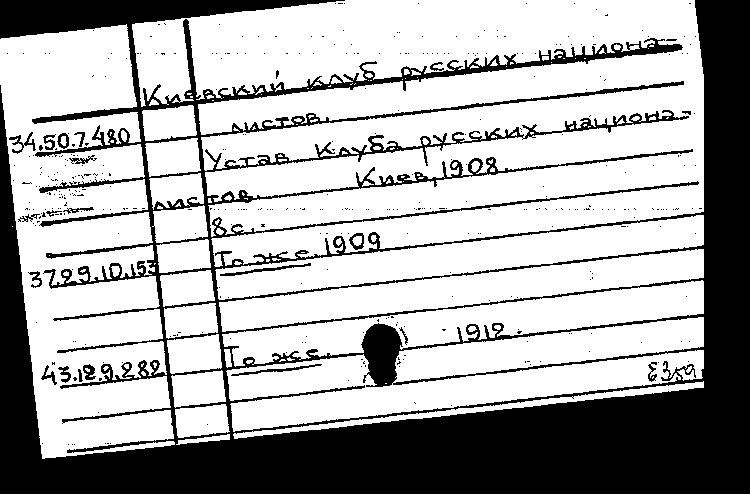 Киевский клуб русских национа-
листов.
34.507.480
Устав Клуба русских национа-
листов. Киев, 1908.
8с.
37.29.10.153 То же. 1909
43.129.282 То же. 1912.
Е359